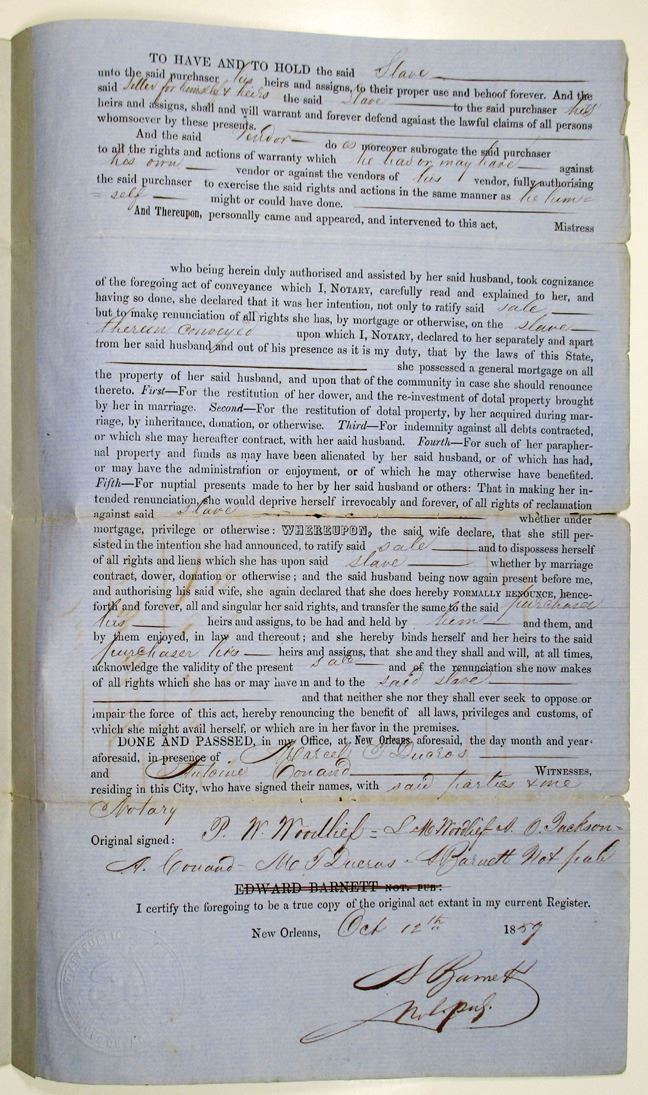 TO HAVE AND TO HOLD the said Slave
unto the said purchaser his heirs and assigns, to their proper use and behoof forever. And the
said seller for himself & heirs the said Slave to the said purchaser his
heirs and assigns, shall and will warrant and forever defend against the lawful claims of all persons
whomsoever by these presents.
And the said Vendor do as moreover subrogate the said purchaser
to all the rights and actions of warranty which he has or may have against
his own vendor or against the vendors of his vendor, fully authorising
the said purchaser to exercise the said rights and actions in the same manner as he him=
=self might or could have done.
And Thereupon, personally came and appeared, and intervened to this act, Mistress
who being herein duly authorised and assisted by her said husband, took cognizance
of the foregoing act of conveyance which I, NOTARY, carefully read and explained to her, and
having so done, she declared that it was her intention, not only to ratify said sale
but to make renunciation of all rights she has, by mortgage or otherwise, on the slave
therein conveyed upon which I, NOTARY, declared to her separately and apart
from her said husband and out of his presence as it is my duty, that by the laws of this State,
she possessed a general mortgage on all
the property of her said husband, and upon that of the community in case she should renounce
thereto. First—For the restitution of her dower, and the re-investment of dotal property brought
by her in marriage. Second—For the restitution of dotal property, by her acquired during mar-
riage, by inheritance, donation, or otherwise. Third—For indemnity against all debts contracted,
or which she may hereafter contract, with her said husband. Fourth—For such of her parapher-
nal property and funds as may have been alienated by her said husband, or of which has had,
or may have the administration or enjoyment, or of which he may otherwise have benefited.
Fifth—For nuptial presents made to her by her said husband or others: That in making her in-
tended renunciation, she would deprive herself irrevocably and forever, of all rights of reclamation
against said slave whether under
mortgage, privilege or otherwise: WHEREUPON, the said wife declare, that she still per-
sisted in the intention she had announced, to ratify said sale and to dispossess herself
of all rights and liens which she has upon said slave whether by marriage
contract, dower, donation or otherwise; and the said husband being now again present before me,
and authorising his said wife, she again declared that she does hereby FORMALLY RENOUNCE, hence-
forth and forever, all and singular her said rights, and transfer the same to the said purchaser
his heirs and assigns, to be had and held by him and them, and
by them enjoyed, in law and thereout; and she hereby binds herself and her heirs to the said
purchaser his heirs and assigns, that she and they shall and will, at all times,
acknowledge the validity of the present sale and of the renunciation she now makes
of all rights which she has or may have in and to the said slave
and that neither she nor they shall ever seek to oppose or
impair the force of this act, hereby renouncing the benefit of all laws, privileges and customs, of
which she might avail herself, or which are in her favor in the premises.
DONE AND PASSSED, in my Office, at New Orleans aforesaid, the day month and year
aforesaid, in presence of Marcel T Ducros
and Antoine Conand WITNESSES,
residing in this City, who have signed their names, with said parties & me
Notary
Original signed: P. W. Woodlief = L M Woodlief A. O. Jackson =
A. Conand - M T Ducros - A Barnett Not pub
EDWARD BARNETT NOT. PUB:
I certify the foregoing to be a true copy of the original act extant in my current Register.
New Orleans, Oct 12th 1859
A Barnett
Not. pub.